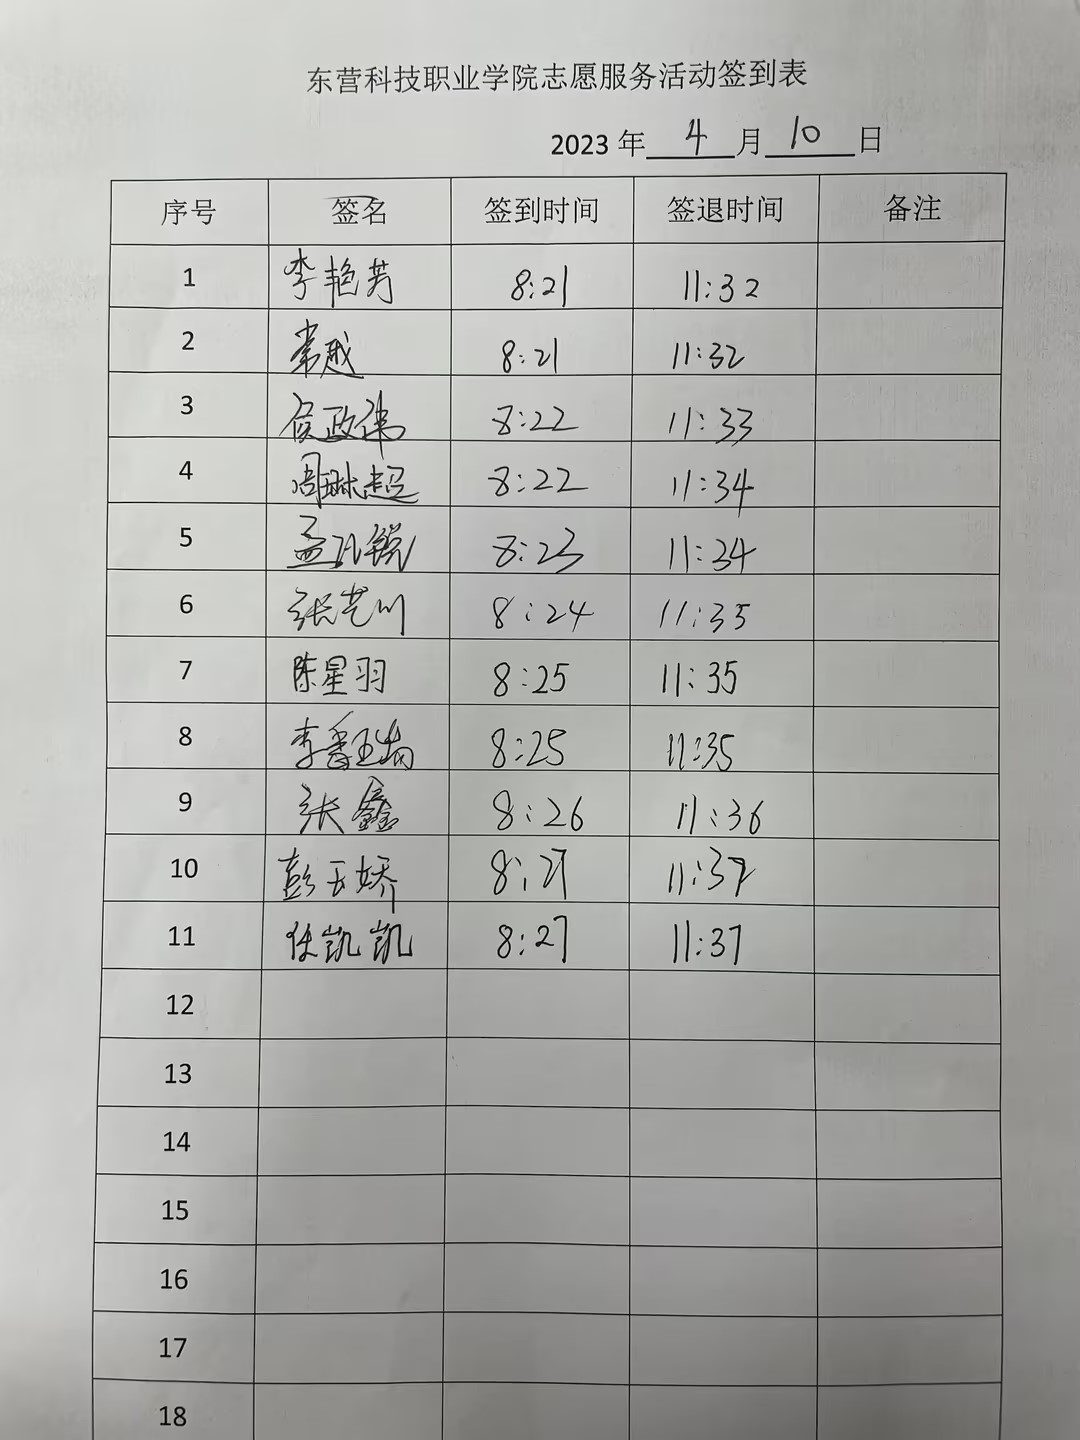 东营科技职业学院志愿服务活动签到表
2023 年 4 月 10 日
序号 签名 签到时间 签退时间 备注
1 李艳芳 8:21 11:32
2 常越 8:21 11:32
3 侯政伟 8:22 11:33
4 周琳超 8:22 11:34
5 孟凡锐 8:23 11:34
6 张艺川 8:24 11:35
7 陈星羽 8:25 11:35
8 李 8:25 11:35
9 张鑫 8:26 11:36
10 彭玉娇 8:27 11:37
11 任凯凯 8:27 11:37
12
13
14
15
16
17
18